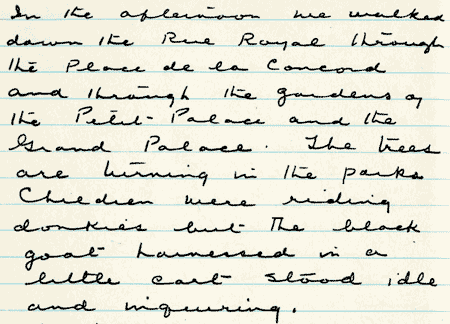 In the afternoon we walked
down the Rue Royal through
the Place de la Concord
and through the gardens of
the Petit-Palace and the
Grand Palace. The trees
are turning in the parks
Children were riding
donkies but the black
goat harnessed in a
little cart stood idle
and inqueuring.